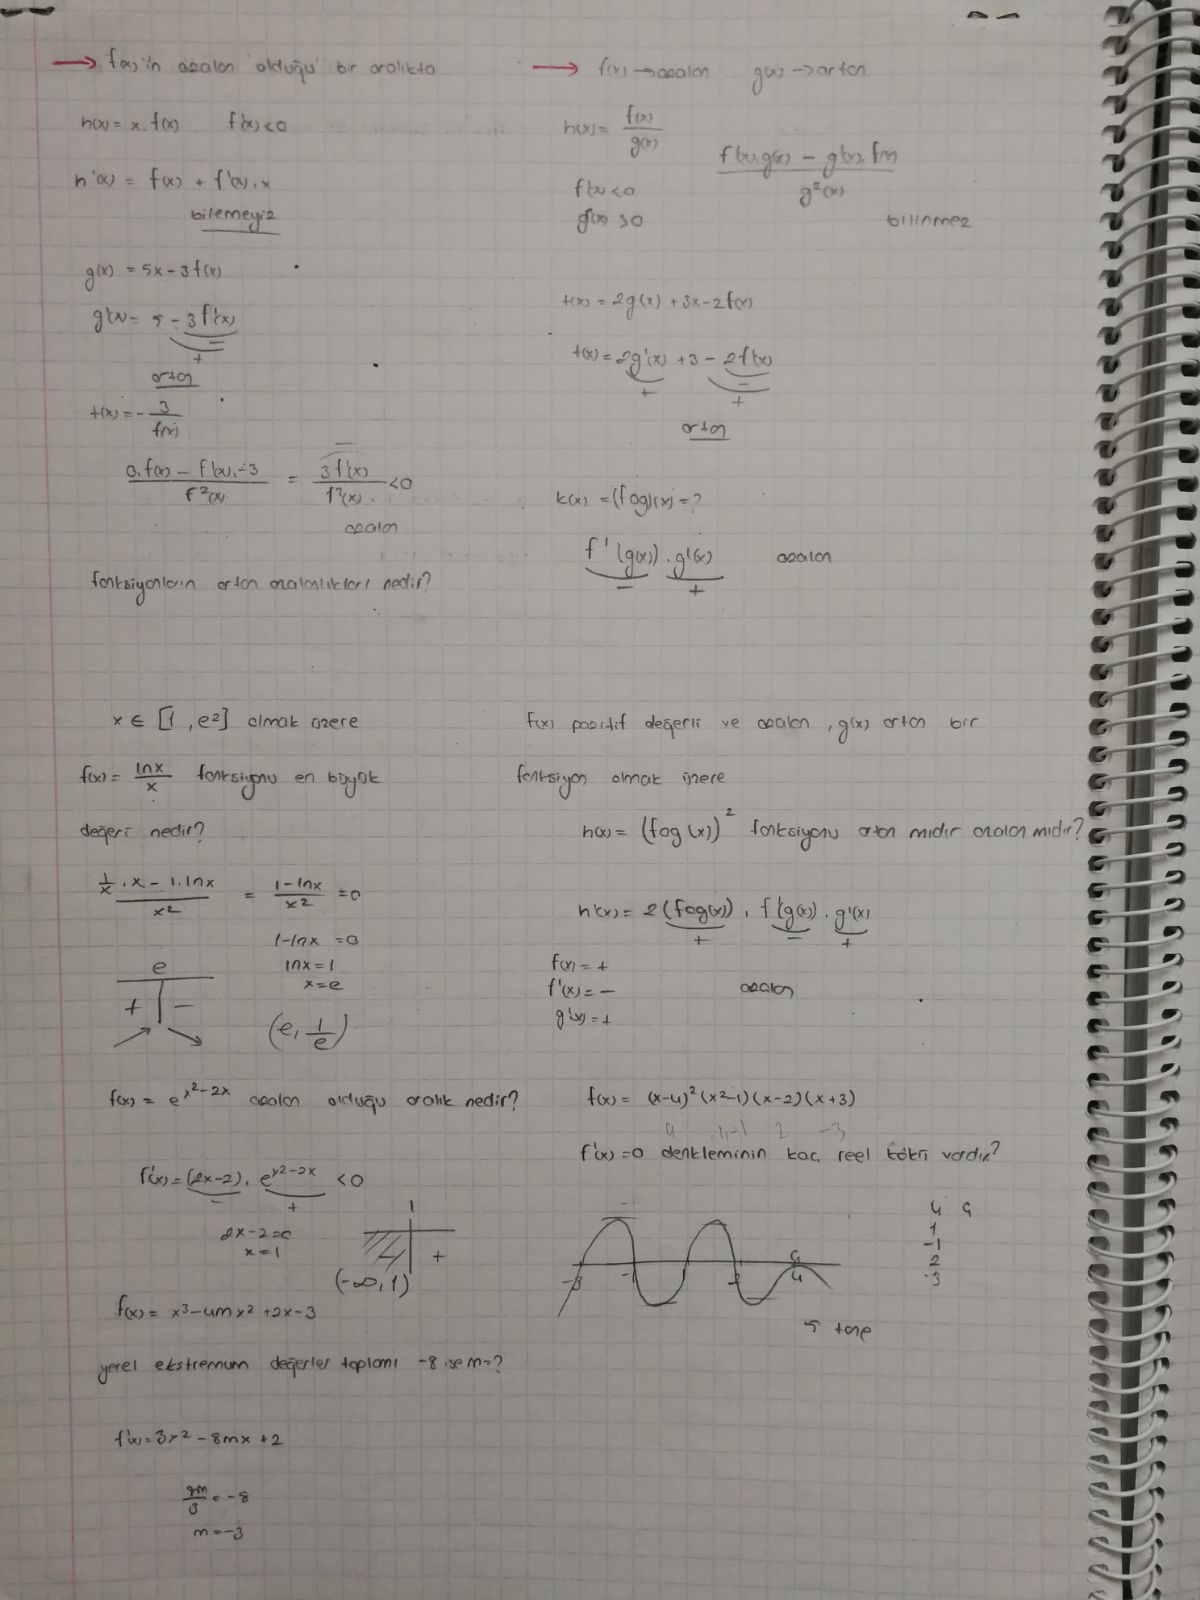 → f(x)'in azalan olduğu bir aralıkta
h(x) = x.f(x)    f'(x) < 0
h'(x) = f(x) + f'(x).x
bilemeyiz
g(x) = 5x - 3f(x)
g'(x) = 5 - 3f'(x)
-
+
artan
t(x) = - 3/f(x)
(0.f(x) - f'(x).-3)/f²(x) = 3f'(x)/f²(x) < 0
-
azalan
fonksiyonların artan azalanlıkları nedir?
→ f(x) → azalan    g(x) → artan
h(x) = f(x)/g(x)
(f'(x).g(x) - g'(x).f(x))/g²(x)
f'(x) < 0
g'(x) > 0    bilinmez
t(x) = 2g(x) + 3x - 2f(x)
t(x) = 2g'(x) + 3 - 2f'(x)
+    -
+
artan
k(x) = (fog)(x) = ?
f'(g(x)) . g'(x)    azalan
-    +
x ∈ [1, e²] olmak üzere
f(x) = lnx/x fonksiyonu en büyük
değeri nedir?
(1/x . x - 1.lnx)/x² = (1-lnx)/x² = 0
1-lnx = 0
lnx = 1
x = e
e
+ | -
(e, 1/e)
f(x) pozitif değerli ve azalan, g(x) artan bir
fonksiyon olmak üzere
h(x) = (fog(x))² fonksiyonu artan mıdır azalan mıdır?
h'(x) = 2(fog(x)) . f'(g(x)) . g'(x)
+    -    +
f(x) = +
f'(x) = -    azalan
g'(x) = +
f(x) = e^(x²-2x) azalan olduğu aralık nedir?
f'(x) = (2x-2) . e^(x²-2x) < 0
-    +
2x-2=0
x=1
1
- | +
(-∞, 1)
f(x) = (x-4)²(x²-1)(x-2)(x+3)
4    1,-1    2    -3
f'(x) = 0 denkleminin kaç reel kökü vardır?
-3    -1    2    4
4 4
1
-1
2
-3
5 tane
f(x) = x³-4mx²+2x-3
yerel ekstremum değerler toplamı -8 ise m=?
f'(x) = 3x²-8mx+2
8m/3 = -8
m=-3